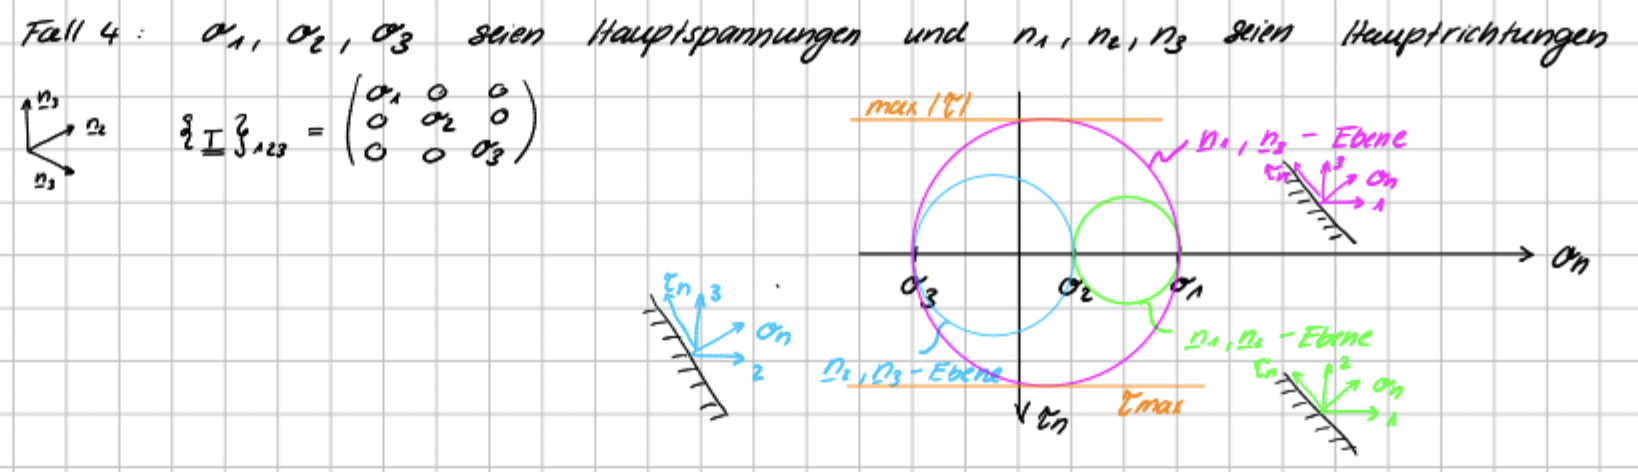 Fall 4: σ₁, σ₂, σ₃ seien Hauptspannungen und n₁, n₂, n₃ seien Hauptrichtungen
n₃
n₂
n₃
{T}₁₂₃ = (σ₁ 0 0
0 σ₂ 0
0 0 σ₃)
max |τ|
n₁, n₃ - Ebene
τn 3 σn
1
σn
σ₃ σ₂ σ₁
τn 3
σn
2
n₂, n₃ - Ebene
n₁, n₂ - Ebene
τn 2 σn
1
τmax
τn